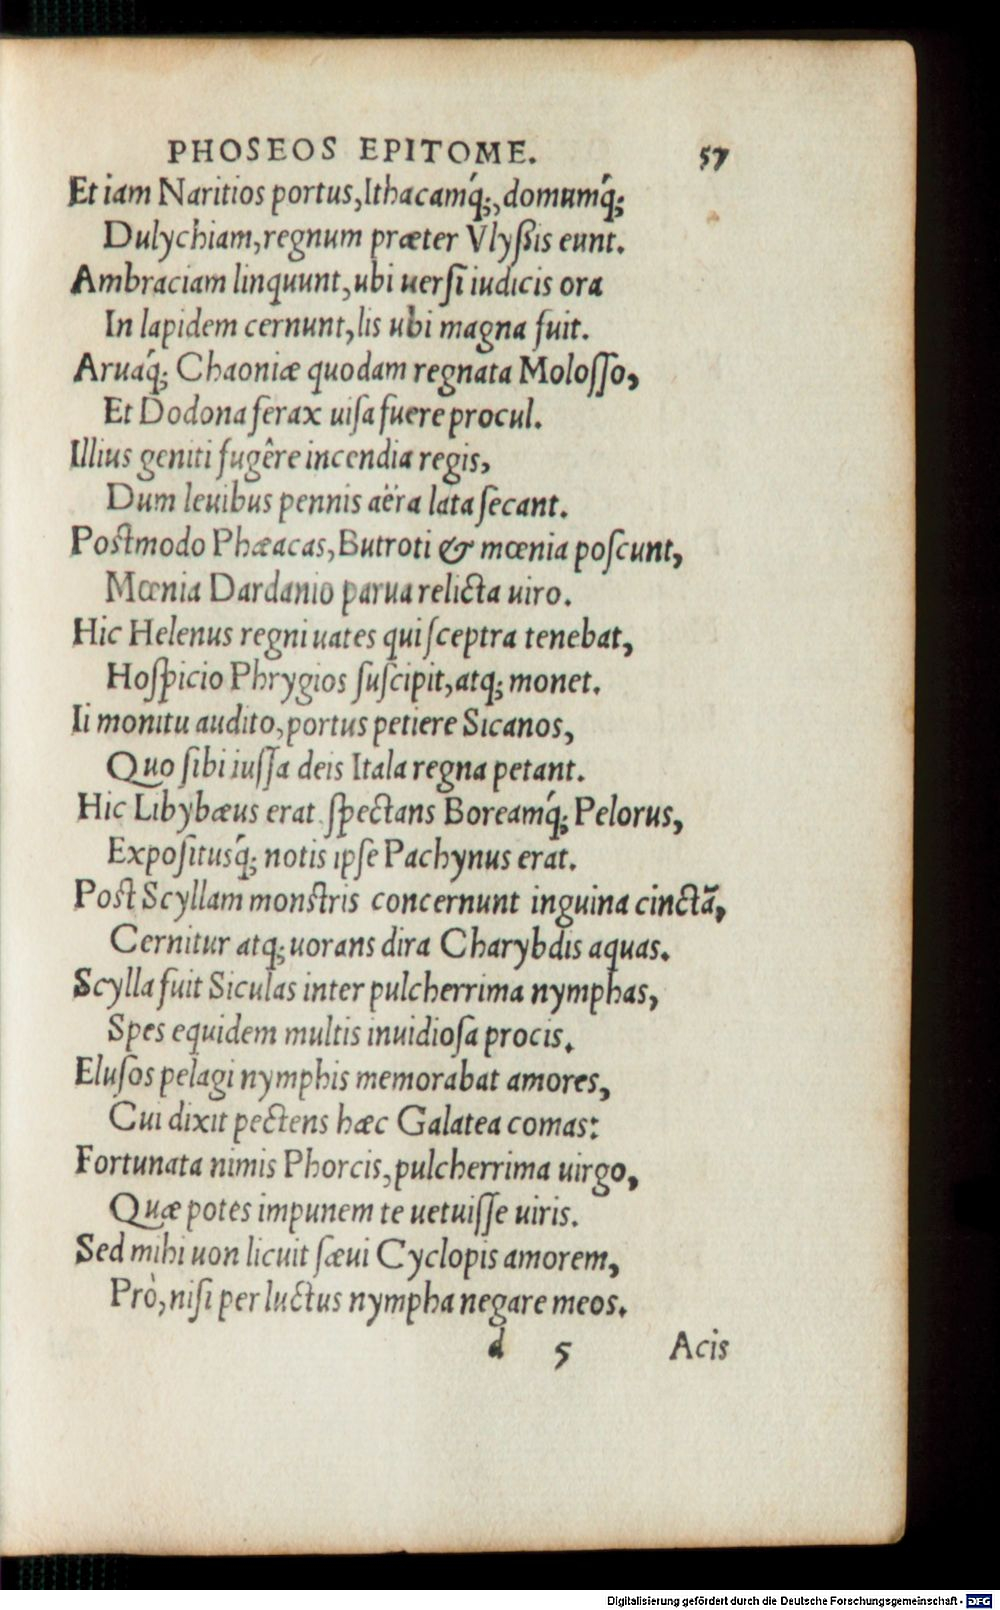 PHOSEOS EPITOME. 57
Et iam Naritios portus, Ithacamq́;, domumq́;
Dulychiam, regnum præter Vlyßis eunt.
Ambraciam linquunt, ubi uerſi iudicis ora
In lapidem cernunt, lis ubi magna fuit.
Aruaq́; Chaoniæ quodam regnata Moloſſo,
Et Dodona ferax uiſa fuere procul.
Illius geniti fugêre incendia regis,
Dum leuibus pennis aëra lata ſecant.
Postmodo Phæacas, Butroti & mœnia poſcunt,
Mœnia Dardanio parua relicta uiro.
Hic Helenus regni uates qui ſceptra tenebat,
Hoſpicio Phrygios ſuſcipit, atq; monet.
Ii monitu audito, portus petiere Sicanos,
Quo ſibi iuſſa deis Itala regna petant.
Hic Libybæus erat ſpectans Boreamq́; Pelorus,
Expoſitusq́; notis ipſe Pachynus erat.
Post Scyllam monstris concernunt inguina cinctã,
Cernitur atq; uorans dira Charybdis aquas.
Scylla fuit Siculas inter pulcherrima nymphas,
Spes equidem multis inuidioſa procis.
Eluſos pelagi nymphis memorabat amores,
Cui dixit pectens hæc Galatea comas:
Fortunata nimis Phorcis, pulcherrima uirgo,
Quæ potes impunem te uetuiſſe uiris.
Sed mihi uon licuit ſæui Cyclopis amorem,
Prò, niſi per luctus nympha negare meos.
d 5 Acis
Digitalisierung gefördert durch die Deutsche Forschungsgemeinschaft - DFG